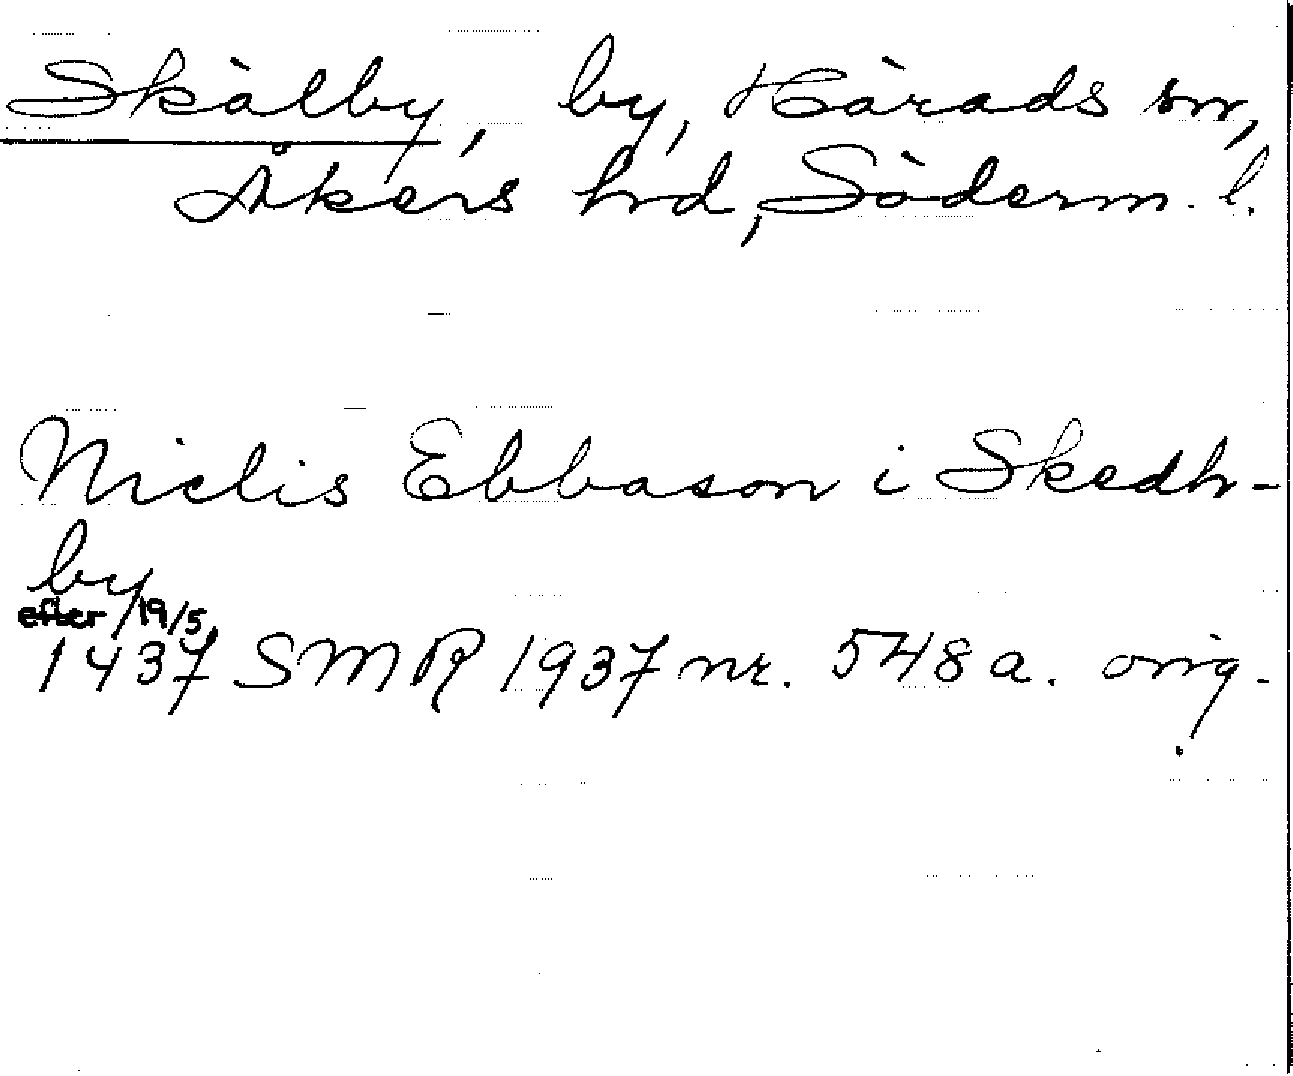 Skälby, by, Härads sn,
Åkers hd, Söderm. l.
Niclis Ebbason i Skedh-
by
efter /19/5,
1437 SMR 1937 nr. 548 a. orig.